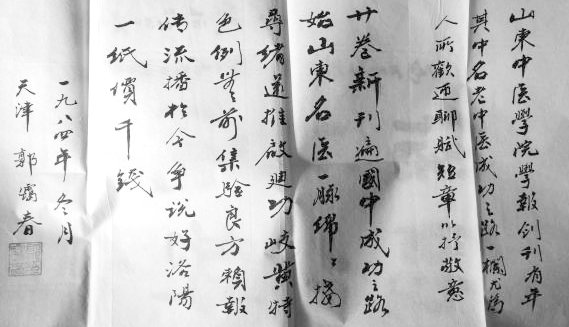 山東中医學院學報創刊有年
其中名老中医成功之路一欄尤為
人所歡迎聊賦短章以抒敬意
廿卷新刊遍國中成功之路
始山東名医一脉綿々
尋緒推啟迪功岐黃特
色無前集驗良方賴報
传流播於今争说好洛陽
一紙價千錢
一九八四年冬月
天津 郭靄春